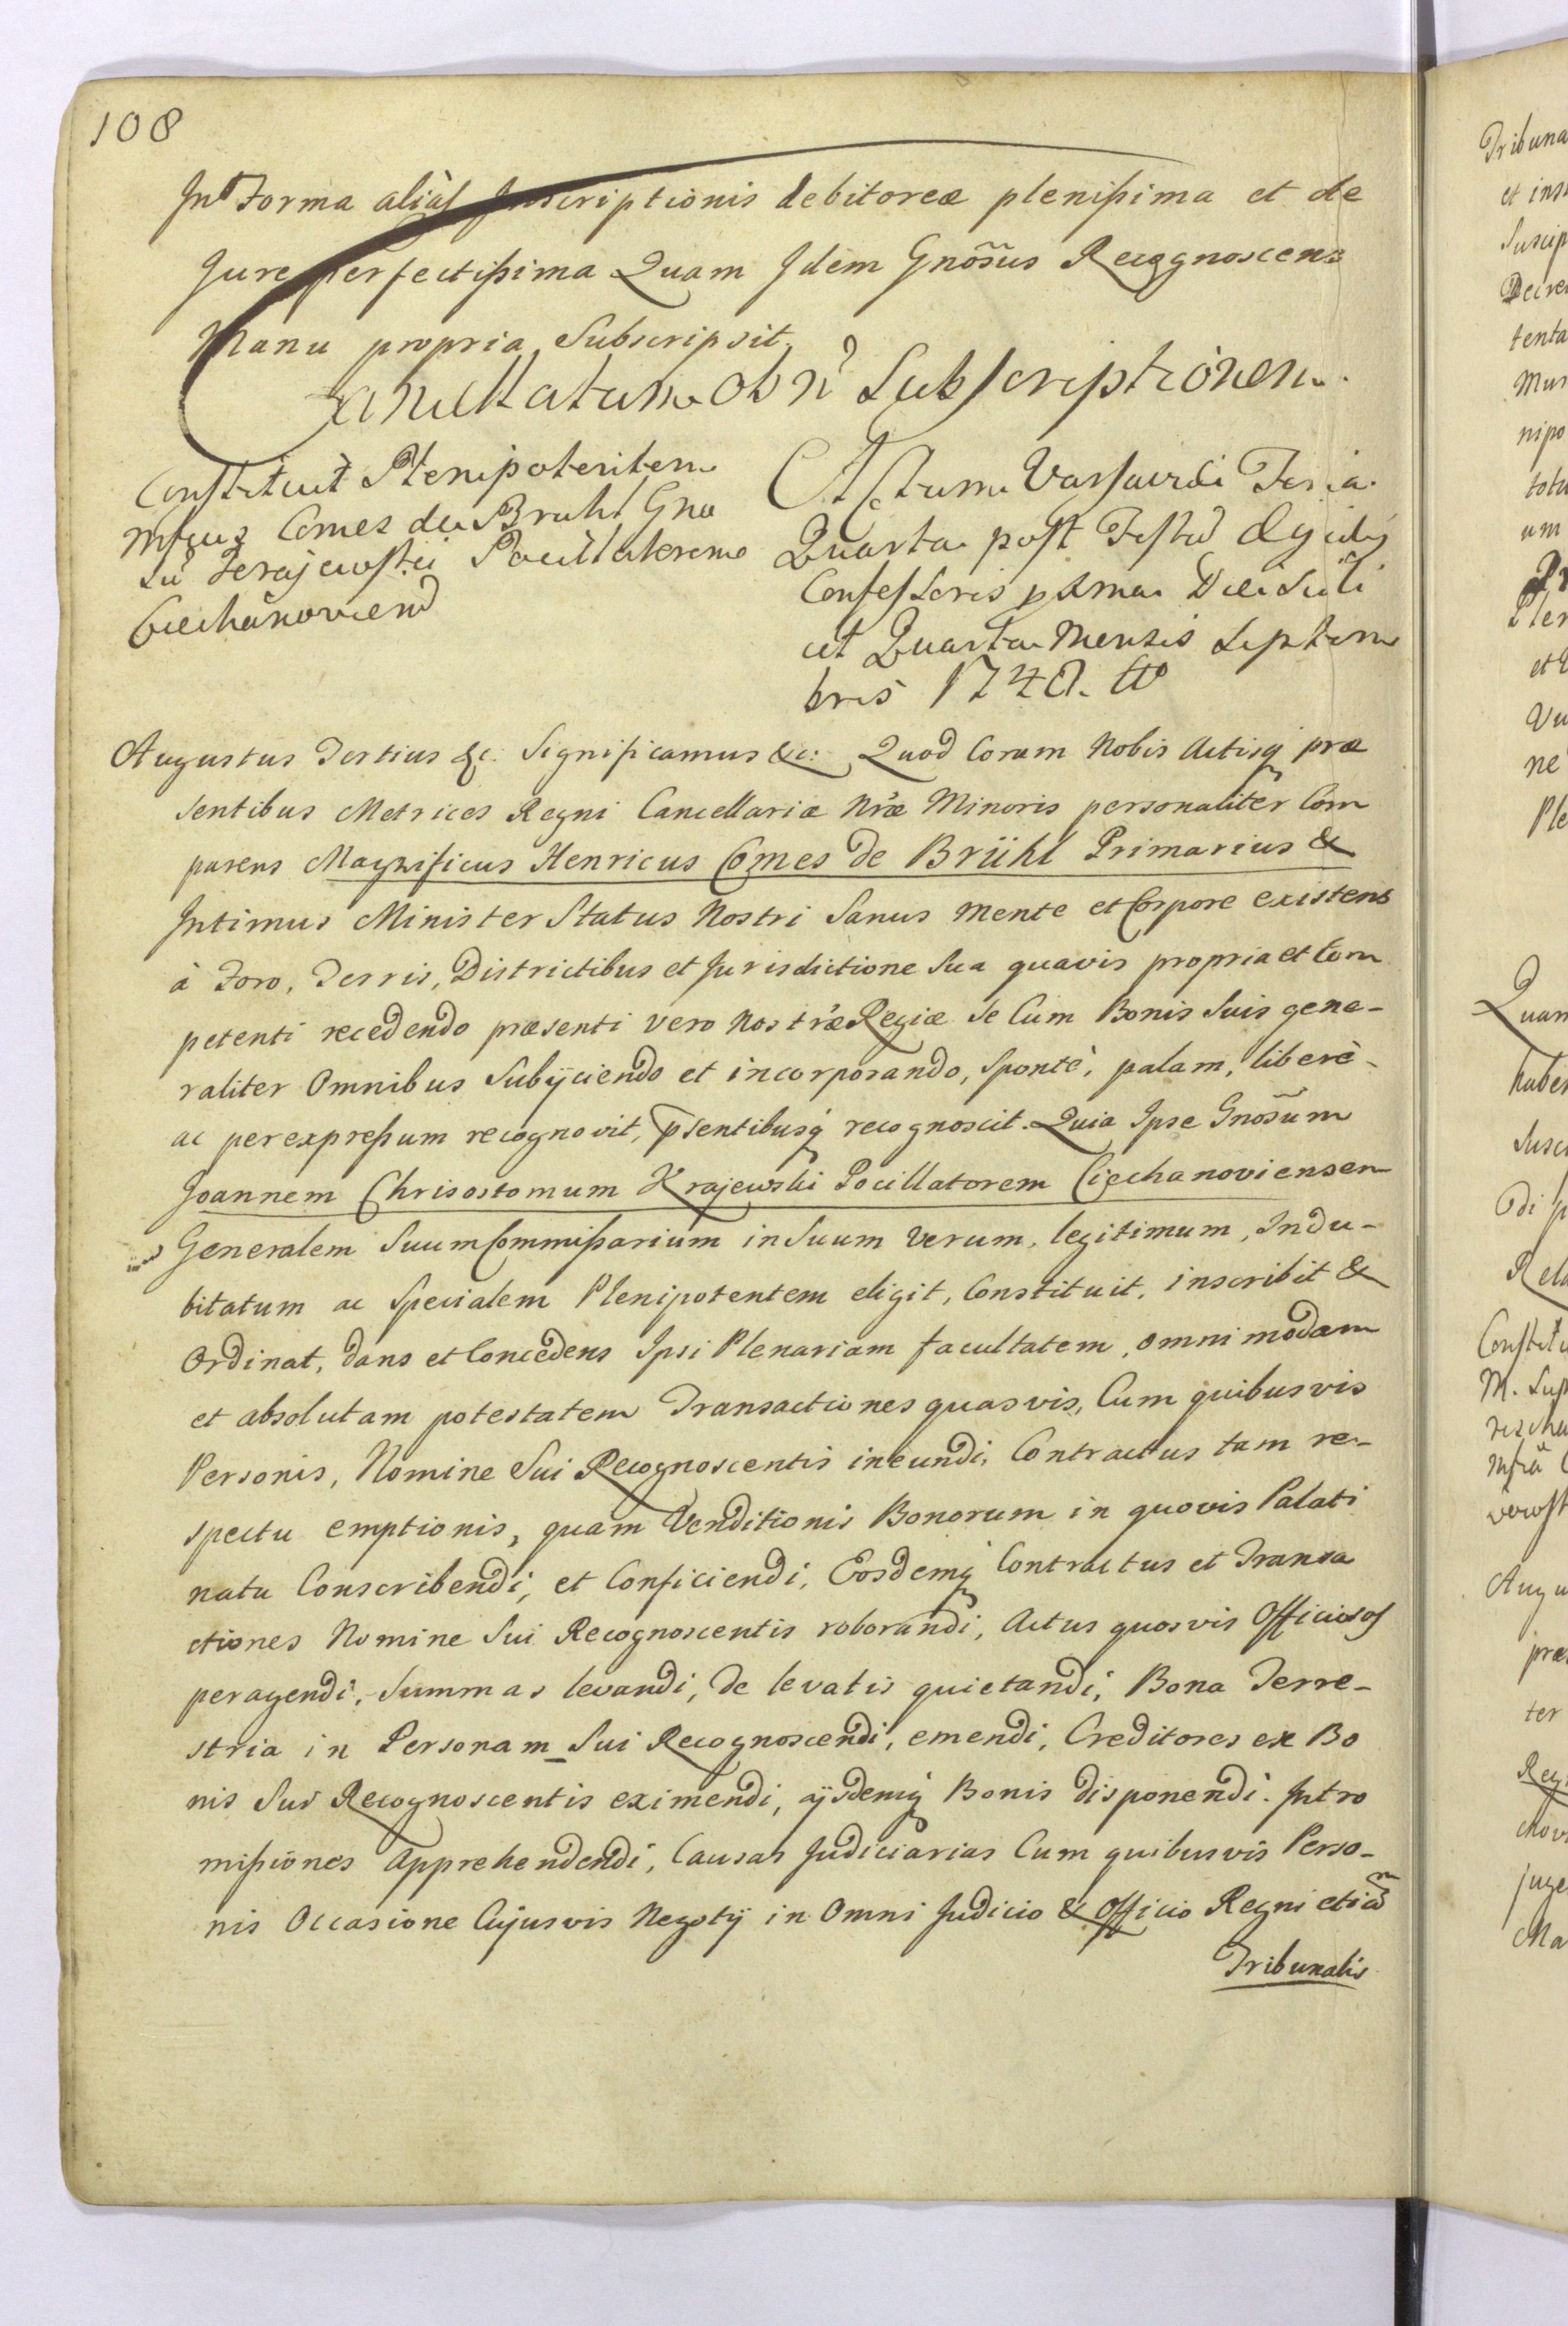 108
In Forma aliàs Inscriptionis debitoreæ plenißima et de
Jure perfectißima Quam Jdem Gnõsus Recognoscens
Manu propria Subscripsit.
Cancellatum ob ñ Subscriptionem.
Constituit Plenipotentem
Mfcus Comes de Bruhl Gno
su Krajewski Pocillatorem
Ciechanovien
Actum Varsaviæ Feria
Quarta post Festu Ægidij
Confessoris pxma Die scili
cet Quarta Mensis Septem
bris 1748. to
Augustus Tertius &c. Significamus &c: Quod Coram Nobis Actisq præ
sentibus Metrices Regni Cancellariæ Nr̃æ Minoris personalitêr Com
parens Magnificus Henricus Comes de Brühl Primarius &
Intimus Minister Status Nostri Sanus mente et Corpore existens
à Foro, Terris, Districtibus et Jurisdictione Sua quavis propria et Com
petenti recedendo præsenti vero Nostræ Regiæ se Cum Bonis Suis gene-
raliter Omnibus Subijciendo et incorporando, Sponte, palam, liberè-
ac per expreßum recognovit, p̃sentibusq recognoscit. Quia Ipse Gnõsum
Joannem Chrisostomum Krajewski Pocillatorem Ciechanoviensem
Generalem Suum Commißarium in Suum Verum, legitimum, Indu-
bitatum ac Specialem Plenipotentem eligit, Constituit, inscribit &
Ordinat, dans et Concedens Ipsi Plenariam facultatem, omnimodam
et absolutam potestatem Transactiones quasvis, Cum quibusvis
Personis, Nomine Sui Recognoscentis ineundi, Contractus tam re-
spectu emptionis, quam Venditionis Bonorum in quovis Palati
natu Conscribendi, et Conficiendi, Eosdemq Contractus et Transa
ctiones Nomine Sui Recognoscentis roborandi, Actus quosvis Officiosos
peragendi, Summas levandi, de levatis quietandi, Bona Terre-
stria in Personam Sui Recognoscendi, emendi, Creditores ex Bo
nis Sui Recognoscentis eximendi, ijsdemq Bonis disponendi. Intro
mißiones Apprehendendi, Causas Judiciarias Cum quibusvis Perso-
nis Occasione Cujusvis Negotij in Omni Judicio & Officio Regni etiam
Tribunalis